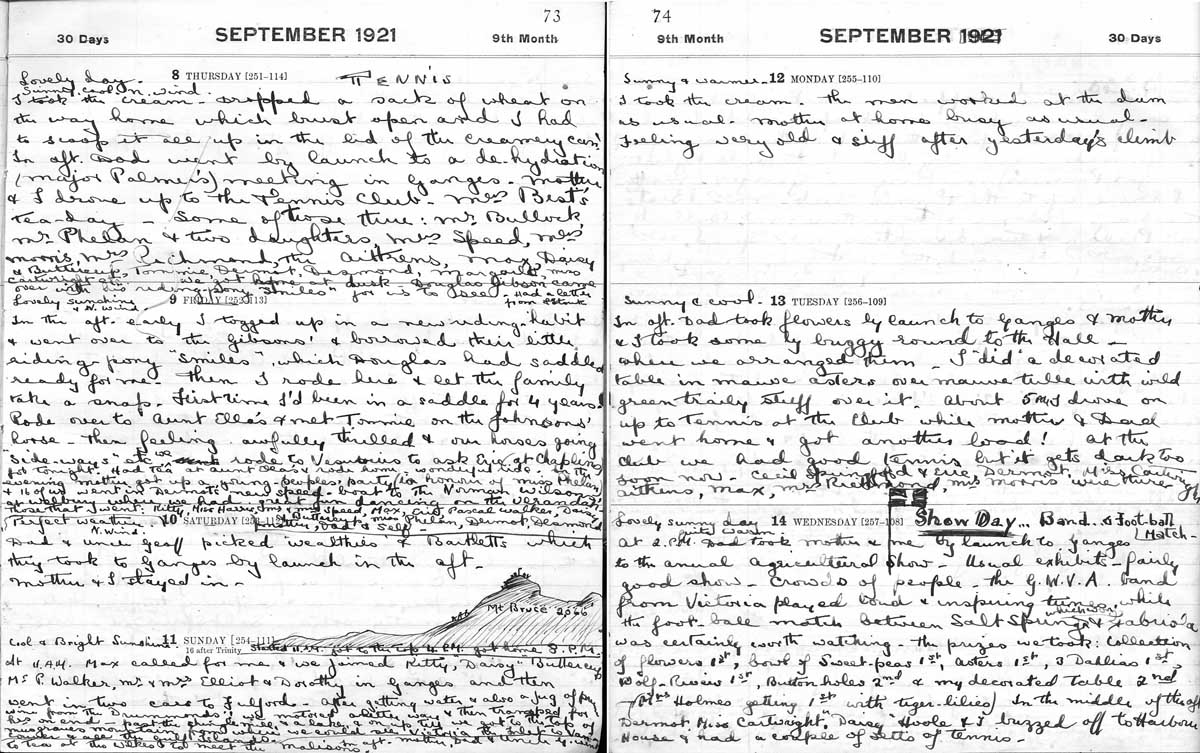 73
30 Days SEPTEMBER 1921 9th Month
Lovely day. 8 THURSDAY [251-114] TENNIS
Sunny, cool N. wind.
I took the cream - dropped a sack of wheat on
the way home which bust open and I had
to scoop it all up in the lid of the creamery can!
In aft. Dad went by launch to a de-hydration
(Major Palmer's) meeting in Ganges. Mother
& I drove up to the Tennis Club - Mrs Best's
tea-day - Some of those there: Mr Bullock
Mr Phelan & two daughters, Mrs Speed, Mrs
Morris, Mrs Richmond, the Aitkens, Max, Daisy
& Buttercup, Tommie, Dermot, Desmond, Margaret, Miss
Cartwright etc. We got home at dusk - Douglas Gibson came
over with his riding-pony "Smiles" for us to see - Had a letter
from
Lovely sunshine 9 FRIDAY [252-113]
& N. wind
In the aft. early I togged up in a new riding-habit
& went over to the Gibsons' & borrowed their little
riding pony "Smiles", which Douglas had saddled
ready for me. Then I rode here & let the family
take a snap. First time I'd been in a saddle for 4 years!
Rode over to Aunt Ella's & met Tommie on the Johnsons'
horse - then feeling awfully thrilled & our horses going
"side-ways" etc we rode to Vesuvius to ask Eric (at Chaplins)
for tonight. Had tea Aunt Ella's & rode home; wonderful ride. In the
evening Mother got up a young peoples' party (in honour of Miss Phelan)
& 16 of us went in Dermot's & Mr Speed's boat to the Norman Wilsons
where we had great fun dancing on the Veranda.
Those that went: Kitty, Miss Harris, Mr & Mrs Speed, Max, Eric, Pascal Walker, Daisy
Buttercup, Miss Phelan, Dermot, Desmond
Perfect weather 10 SATURDAY Mother, Dad & self
N. Wind.
Dad & Uncle Geoff picked Wealthies & Bartletts which
they took to Ganges by launch in the aft.
Mother & I stayed in.
Mt Bruce 2,066'
Cool & Bright Sunshine 11 SUNDAY [254-111] Started 11 A.M. got to the top 4 P.M. got home 8 P.M.
16 after Trinity
At 11 A.M. Max called for me & we joined Kitty, Daisy, Buttercup
Mr P. Walker, Mr & Mrs Elliot & Dorothy in Ganges and then
went in two cars to Fulford. After getting water & also a jug of
wine from the Drummonds', we motored a little way & then tramped for
to tea at the Wilkes' to meet the Malisons. aft. Mother, Dad & Uncle G. went
74
9th Month SEPTEMBER 1921 30 Days
Sunny & warmer 12 MONDAY [255-110]
I took the cream. The men worked at the dam
as usual. Mother at home busy as usual.
Feeling very old & stiff after yesterday's climb
Sunny & cool. 13 TUESDAY [256-109]
In aft. Dad took flowers by launch to Ganges & Mother
& I took some by buggy round to the Hall -
where we arranged them. I "did" a decorated
table in mauve asters over mauve tulle with wild
green traily stuff over it. About 5 P.M. I drove on
up to Tennis at the Club while Mother & Dad
went home & got another load! At the
Club we had good tennis but it gets dark too
soon now. Cecil Springford & Eric, Dermot, Miss Cartwright
Aitkens, Max, Mrs Richmond, Mrs Morris were there
Lovely sunny day 14 WEDNESDAY [257-108] Show Day... Band & Foot-ball
quite warm Match -
At 2 P.M. Dad took Mother & me by launch to Ganges
to the annual agricultural show - Usual exhibits - fairly
good show - Crowds of people - The G.W.V.A. band
from Victoria played loud & inspiring tunes, while
the foot-ball match between Salt Spring & 
was certainly worth watching. The prizes we took: Collection
of flowers 1st, bowl of Sweet-peas 1st, asters 1st, 3 Dahlias 1st,
Wolf-River 1st, Button holes 2nd & my decorated table 2nd
(Mrs Holmes getting 1st with tiger-lilies) In the middle of the aft
Dermot, Miss Cartwright, Daisy, Hoole & I buzzed off to Harbour
House & had a couple of setts of tennis.